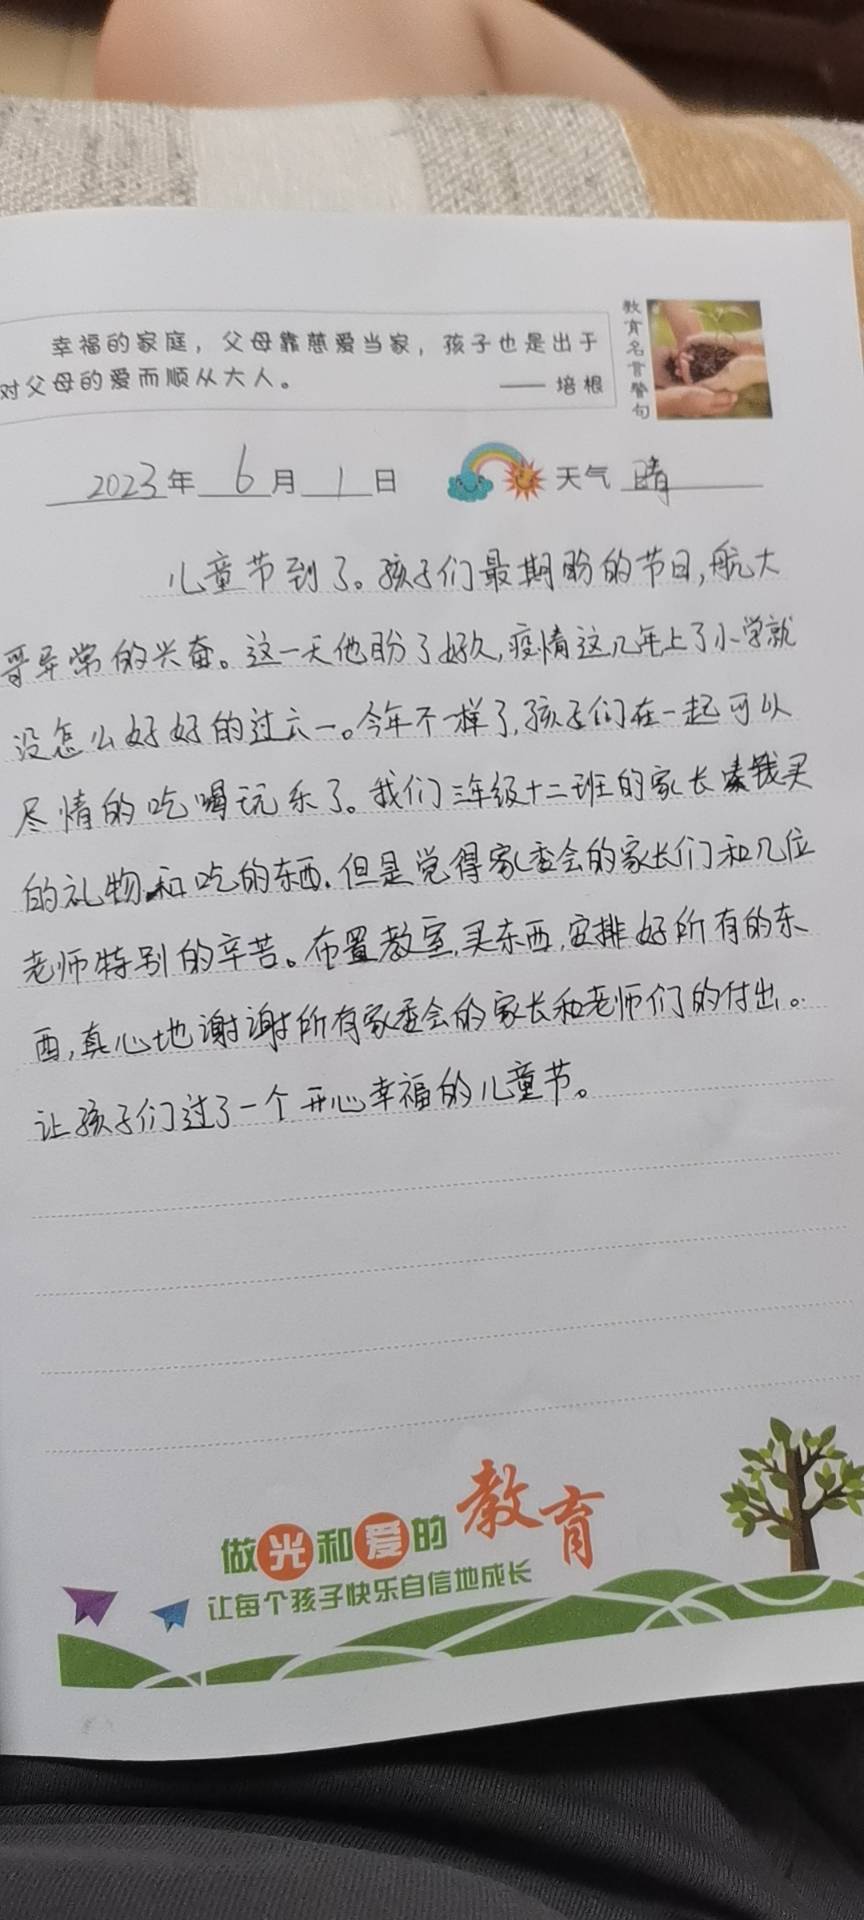 幸福的家庭，父母靠慈爱当家，孩子也是出于
对父母的爱而顺从大人。 —— 培根
教育名言警句
2023年 6 月 1 日 天气 晴
儿童节到了。孩子们最期盼的节日,航大
哥异常的兴奋。这一天他盼了好久,疫情这几年上了小学就
没怎么好好的过六一。今年不一样了,孩子们在一起可以
尽情的吃喝玩乐了。我们三年级十二班的家长集钱买
的礼物和吃的东西.但是觉得家委会的家长们和几位
老师特别的辛苦。布置教室,买东西,安排好所有的东
西,真心地谢谢所有家委会的家长和老师们的付出。
让孩子们过了一个开心幸福的儿童节。
做光和爱的教育
让每个孩子快乐自信地成长